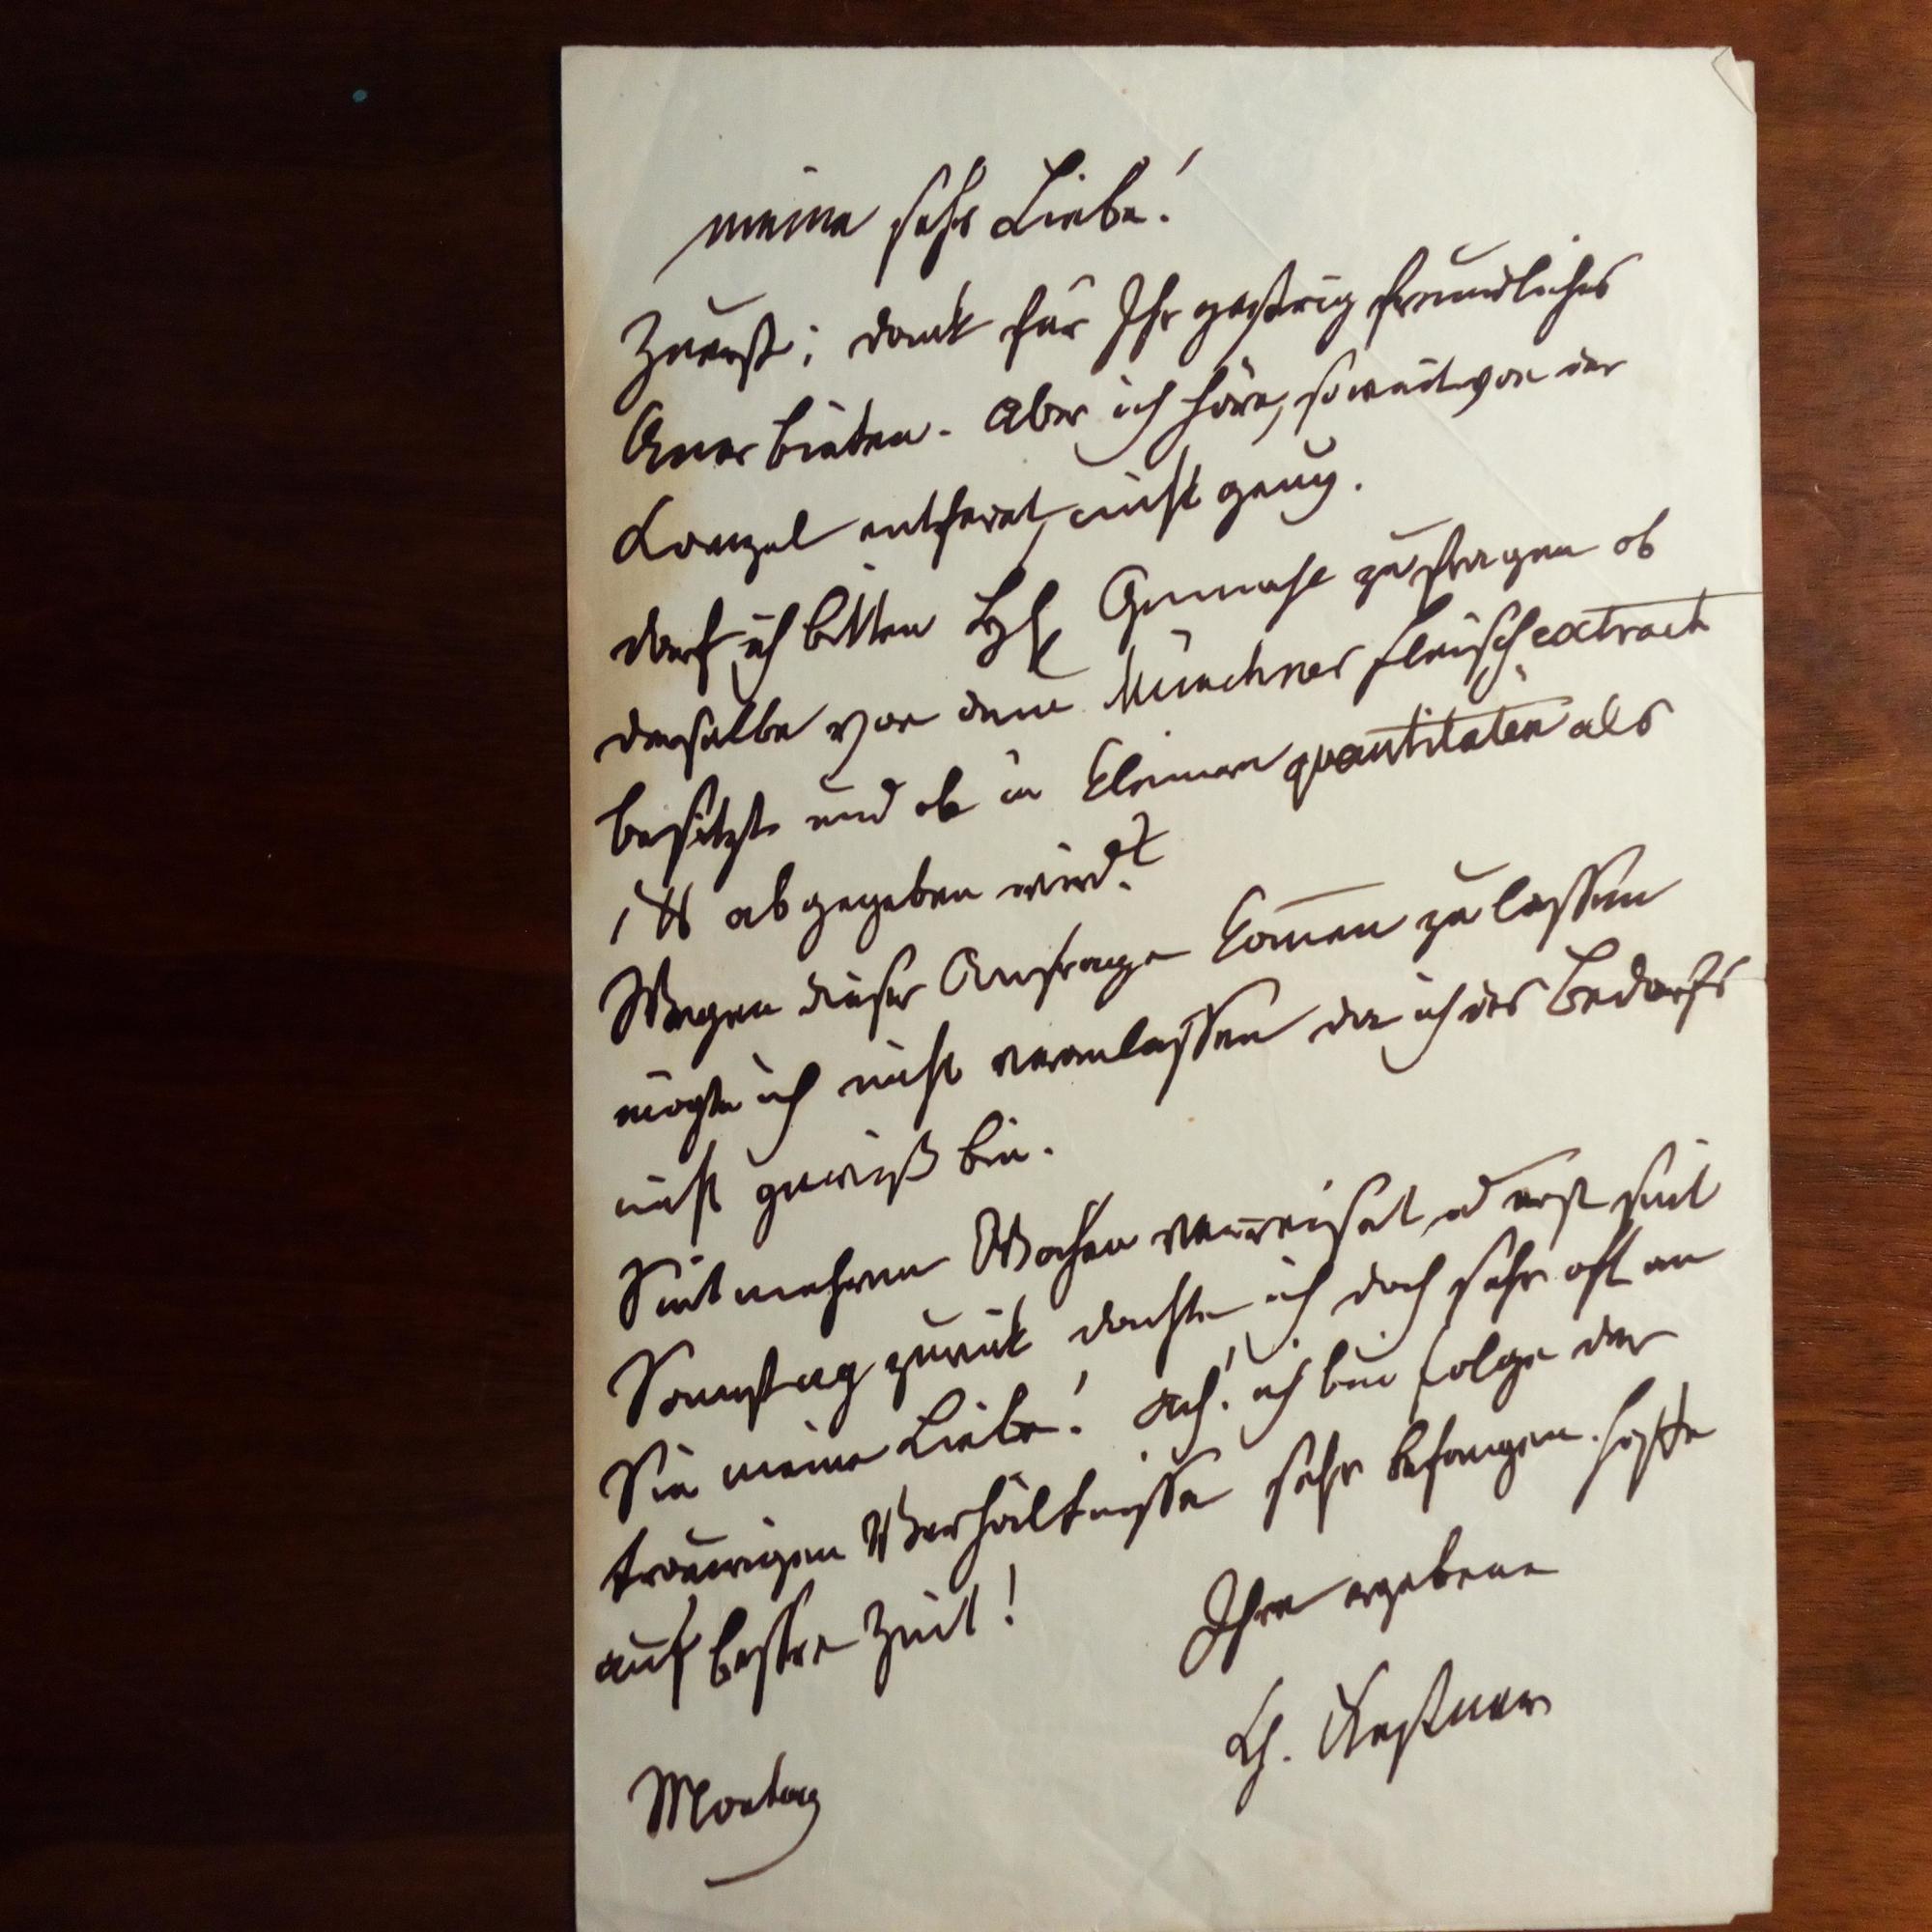 meine sehr Liebe!
Zuerst; dank für Ihr gestrig freundliches
Anerbieten. Aber ich höre, so weit von der
Kanzel entfernt, nicht genug.
darf ich bitten Gemahl zu fragen ob
derselbe von dem Münchner Fleischextract
besitzt und ob in kleinern quantitäten als
1 ℔ abgegeben wird?
Wegen dieser Anfrage kom̅en zu lassen
mögte ich nicht veranlassen da ich des Bedarfs
nicht gewiß bin.
Seit mehrern Wochen verreiset u erst seit
Samstag zurük dachte ich doch sehr oft an
Sie meine Liebe! Ach! ich bin Folge der
traurigen Verhältnisse sehr befangen. hoffe
auf bessre Zeit!
Ihre ergebene
Ch. Kestner
Montag